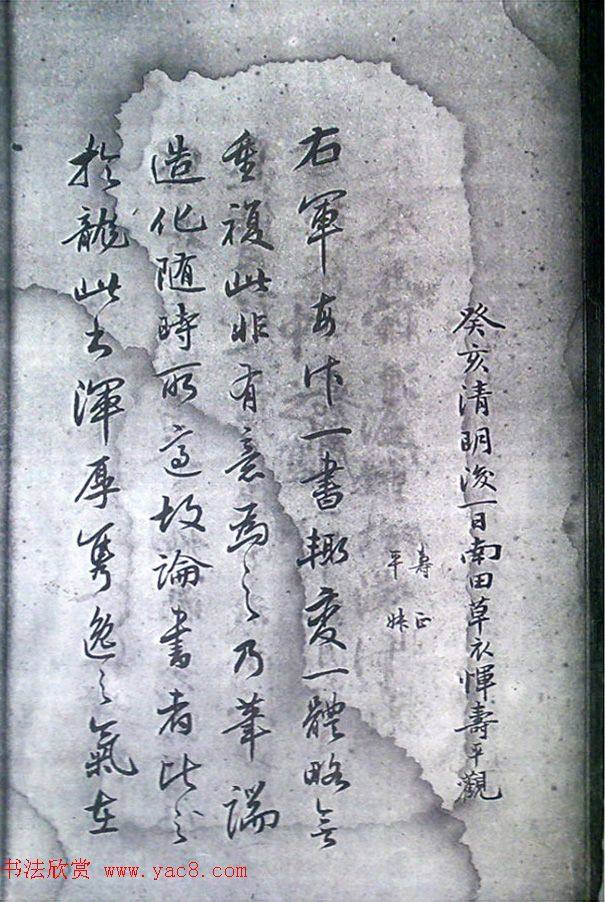 癸亥清明後一日南田草衣惲壽平觀
壽正
平叔
右軍每作一書輒變一體略無
重複此非有意為之乃筆端
造化随時所適故論書者比之
於龍此書渾厚雋逸之氣在
书法欣赏 www.yac8.com